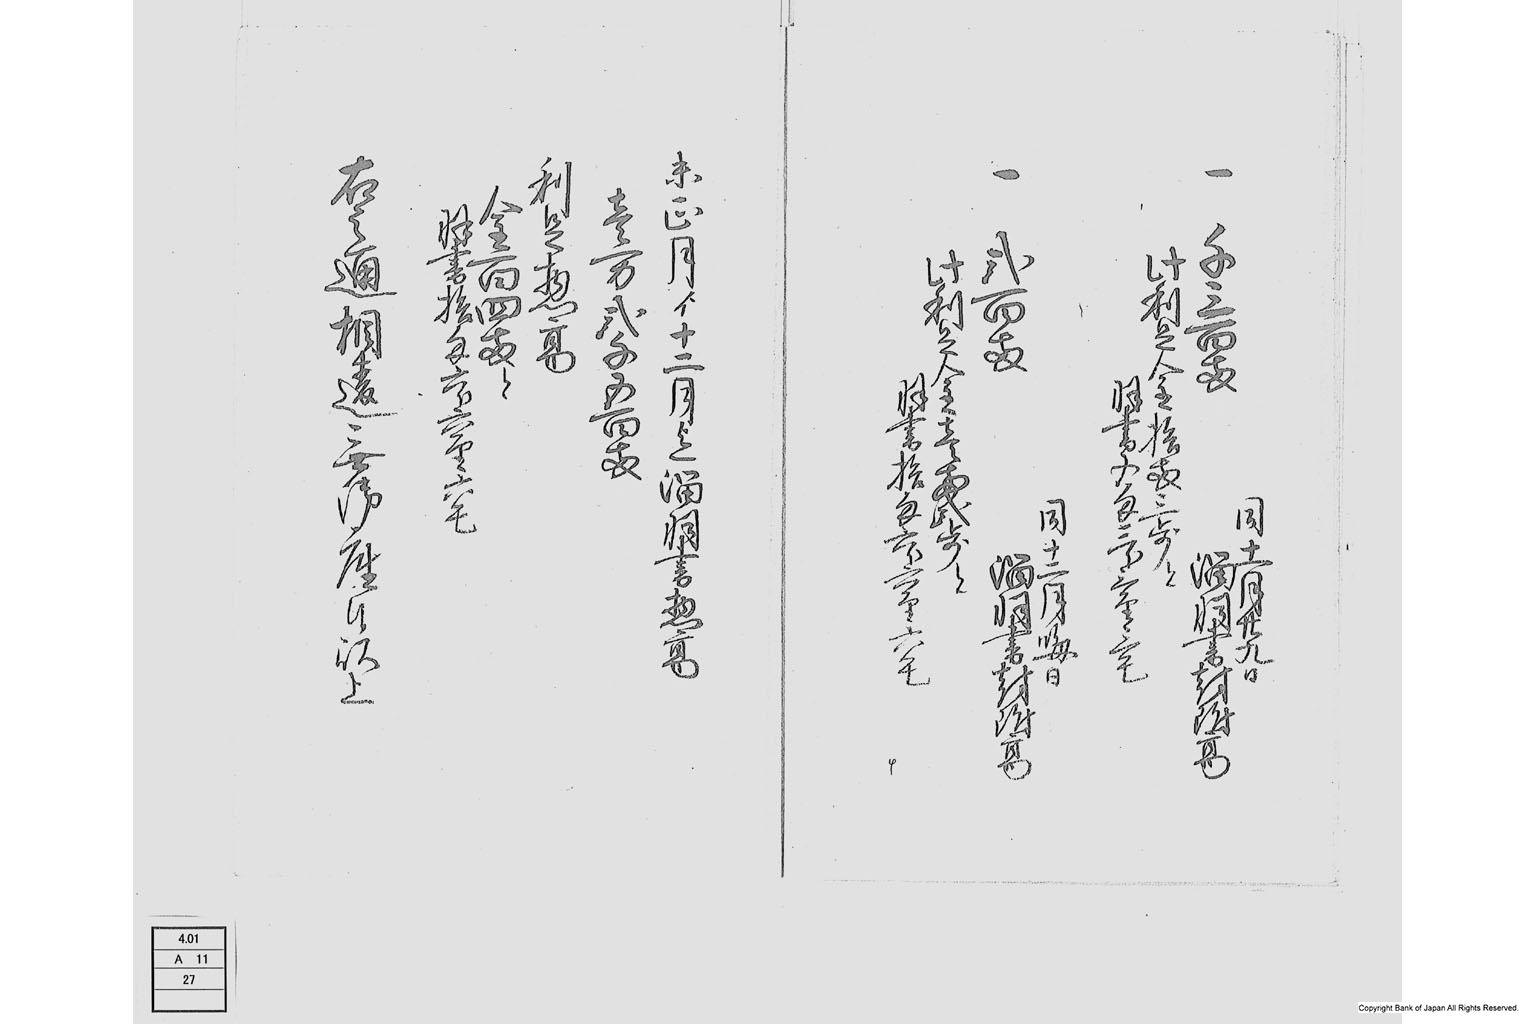 同十一月廿九日
一 千三百両 溜羽書封附高
此利足金拾両三歩と
羽書五匁三分三厘三毛
同十二月晦日
一 弐百両 溜羽書封附高
此利足金壱両弐歩と
羽書拾匁六分六厘六毛
未正月ゟ十二月迄溜羽書惣高
壱万弐千五百両
利足惣高
金百四両と
羽書拾匁六分六厘六毛
右之通相違無御座候以上
4.01
A 11
27
Copyright Bank of Japan All Rights Reserved.